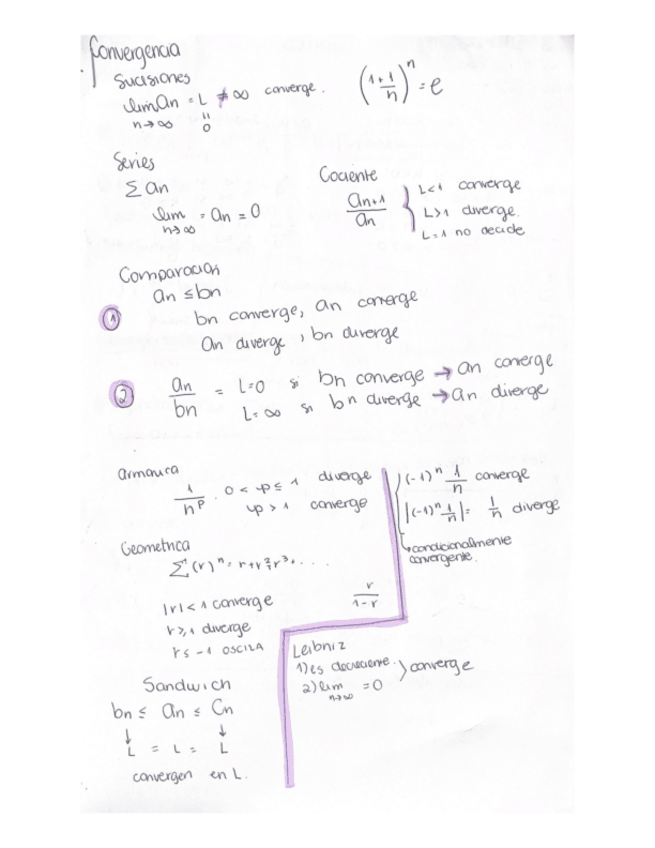 Convergencia
Sucesiones
lim an = L ≠ ∞ converge. (1+1/n)^n = e
n→∞ 
"
0
Series
Σ an
lim = an = 0
n→∞
Cociente
an+1/an { L<1 converge
L>1 diverge.
L=1 no decide
Comparacion
an ≤ bn
① bn converge, an converge
an diverge, bn diverge
② an/bn = L=0 si bn converge → an converge
L=∞ si bn diverge → an diverge
armonica
1/n^p . 0 < p ≤ 1 diverge
p > 1 converge
(-1)^n 1/n converge
|(-1)^n 1/n| = 1/n diverge
↳ condicionalmente
convergente.
Geometrica
Σ (r)^n = r+r²+r³+ ....
|r| < 1 converge r/1-r
r ≥ 1 diverge
r ≤ -1 OSCILA
Leibniz
1) es decreciente. } converge
2) lim = 0
n→∞
Sandwich
bn ≤ an ≤ Cn
↓ ↓
L = L = L
convergen en L.